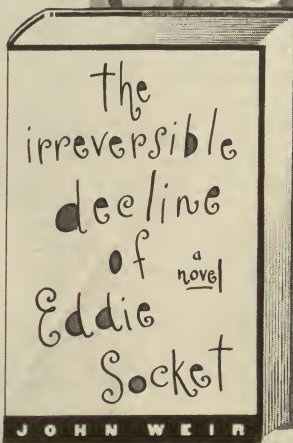 the
irreversible
decline
of
a
novel
Eddie
Socket
JOHN WEIR